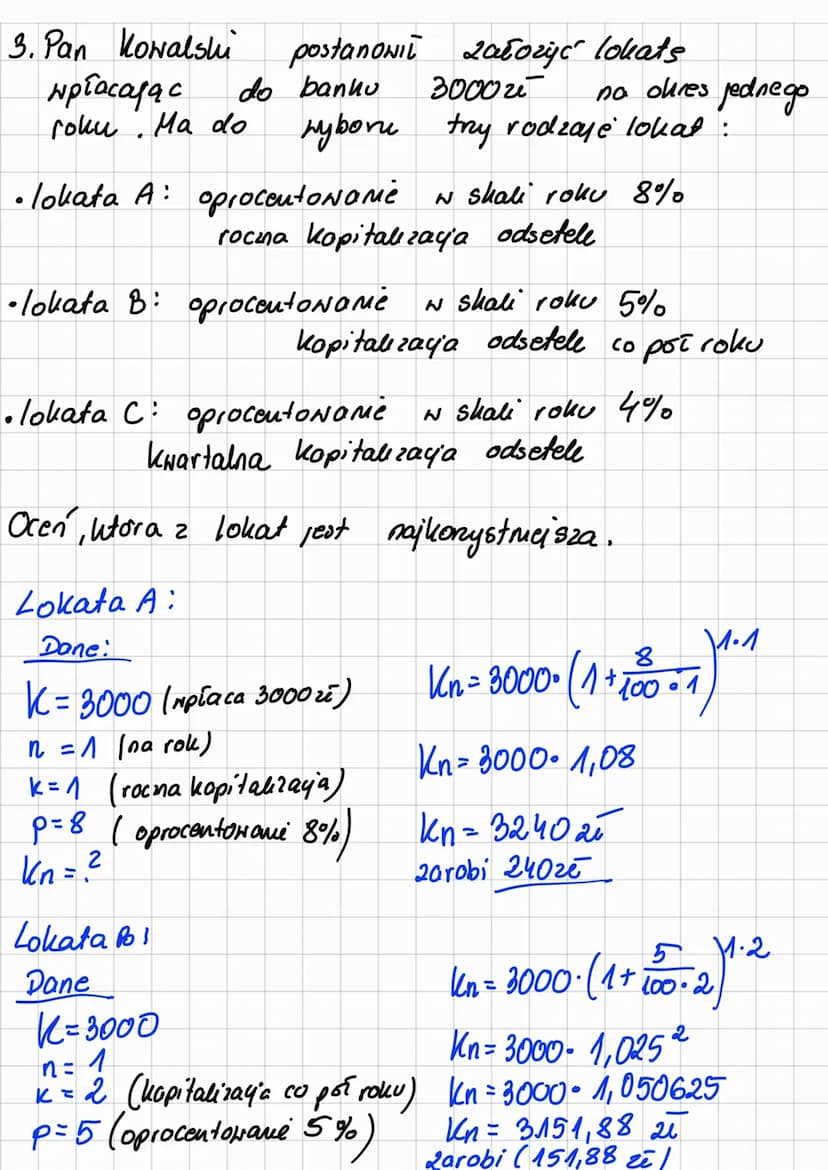 3. Pan Kowalski postanowił założyć lokatę
wpłacając do banku 3000zł na okres jednego
roku. Ma do wyboru trzy rodzaje lokat:
• lokata A: oprocentowanie w skali roku 8%
roczna kapitalizacja odsetek
• lokata B: oprocentowanie w skali roku 5%
kapitalizacja odsetek co pół roku
• lokata C: oprocentowanie w skali roku 4%
kwartalna kapitalizacja odsetek
Oceń, która z lokat jest najkorzystniejsza.
Lokata A:
Dane:
K = 3000 (wpłaca 3000 zł)
n = 1 (na rok)
k = 1 (roczna kapitalizacja)
p = 8 (oprocentowanie 8%)
Kn = ?
Kn = 3000 · (1 + 8/(100 · 1))^1·1
Kn = 3000 · 1,08
Kn = 3240 zł
zarobi 240zł
Lokata B:
Dane
K = 3000
n = 1
k = 2 (kapitalizacja co pół roku)
p = 5 (oprocentowanie 5%)
Kn = 3000 · (1 + 5/(100 · 2))^1·2
Kn = 3000 · 1,025²
Kn = 3000 · 1,050625
Kn = 3151,88 zł
zarobi (151,88 zł)